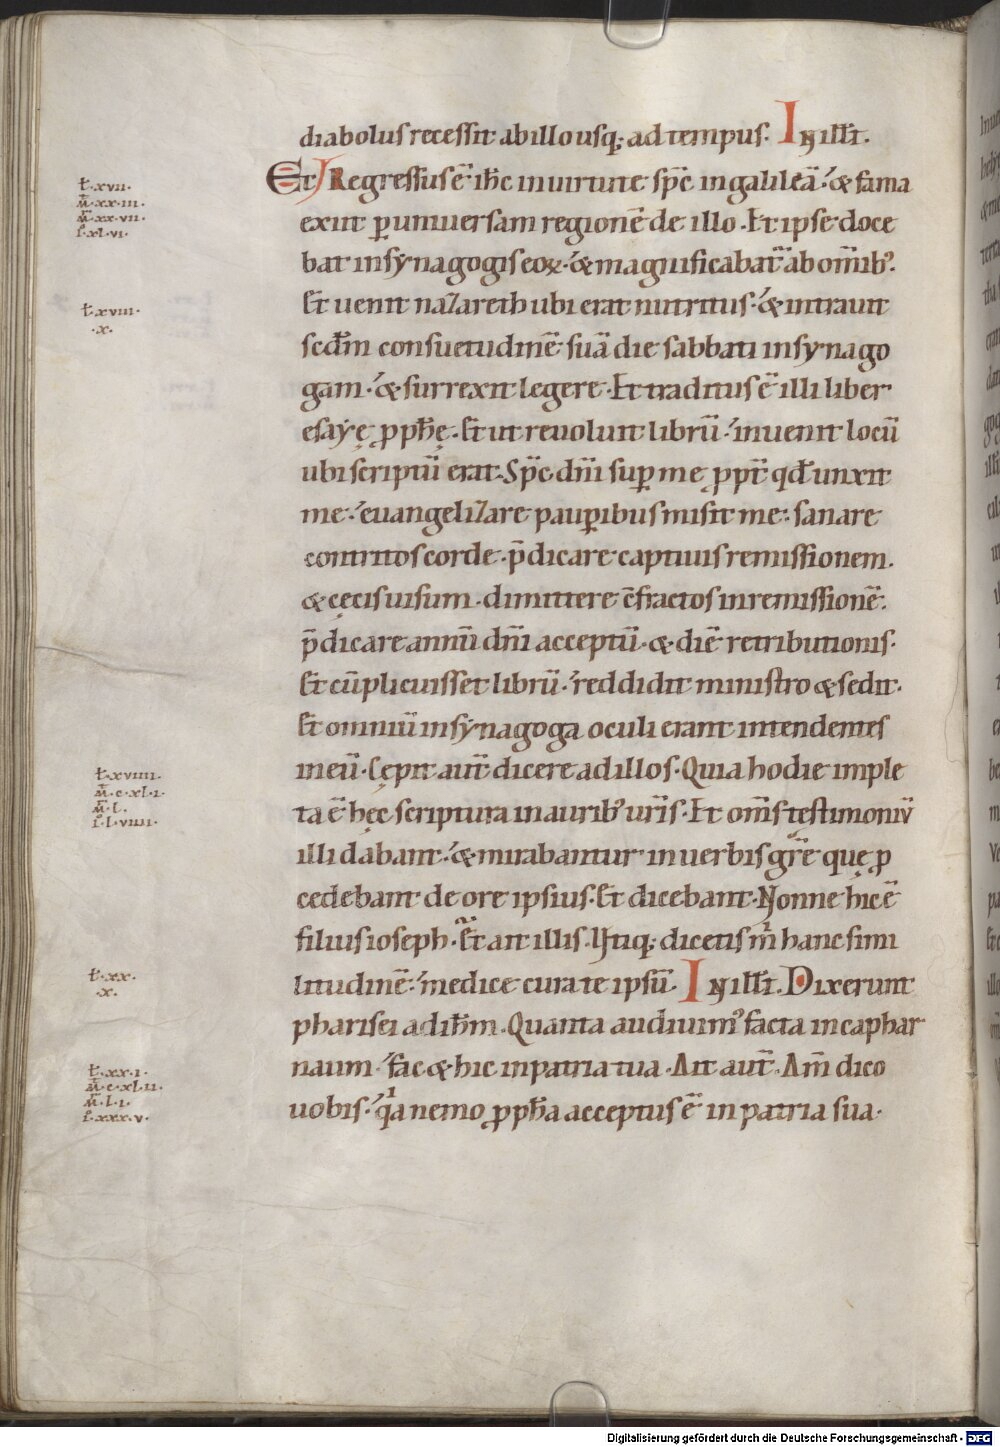 diabolus recessit ab illo usq; ad tempus. In illt̄.
Et Regressus ē ih̄c in uirtute sp̄c in galileā. & fama
exiit ꝑ uniuersam regionē de illo. Et ipse doce
bat in synagogis eoꝝ. & magnificabat̄ ab om̄ib;.
Et uenit nazareth ubi erat nutritus. & intrauit
scd̄m consuetudinē suā die sabbati in synago
gam. & surrexit legere. Et traditus ē illi liber
esayę ꝓph̄ę. Et ut reuoluit librū. inuenit locū
ubi scriptū erat. Sp̄c dn̄i suꝑ me ꝓpt̄ qd̄ unxit
me. euangelizare pauꝑibus misit me. sanare
contritos corde. p̄dicare captiuis remissionem.
& cęcis uisum. dimittere c̄fractos in remissionē.
p̄dicare annū dn̄i acceptū. & diē retributionis.
Et cū plicuisset librū. reddidit ministro & sedit.
Et omniū in synagoga oculi erant intendentes
in eū. Cępit aut̄ dicere ad illos. Quia hodie imple
ta ē hęc scriptura in aurib; ur̄is. Et om̄s testimoniū
illi dabant. & mirabantur in uerbis gr̄e quę ꝓ
cedebant de ore ipsius. Et dicebant. Nonne hic ē
filius ioseph. Et ait illis. Utiq; dicetis m̄ hanc simi
litudinē. medice cura te ipsū. In illt̄. Dixerunt
pharisei ad ih̄m. Quanta audiuim; facta in caphar
naum. fac & hic in patria tua. Ait aut̄. Am̄ dico
uobis. qa nemo ꝓph̄a acceptus ē in patria sua.
ł.xvii.
m̄.xx.iii.
m̄.xx.vii.
ī.xl.vi.
ł.xviii.
.x.
ł.xviiii.
m̄.c.xl.i.
m̄.l.
ī.l.viiii.
ł.xx.
.x.
ł.xx.i.
m̄.c.xl.ii.
m̄.l.i.
ī.xxx.v.
Digitalisierung gefördert durch die Deutsche Forschungsgemeinschaft - DFG